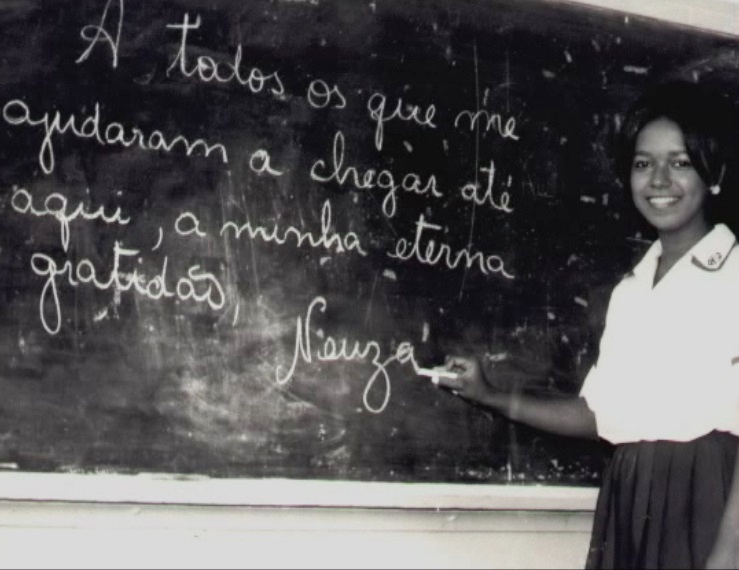 A todos os que me
ajudaram a chegar até
aqui, a minha eterna
gratidão,
Neuza